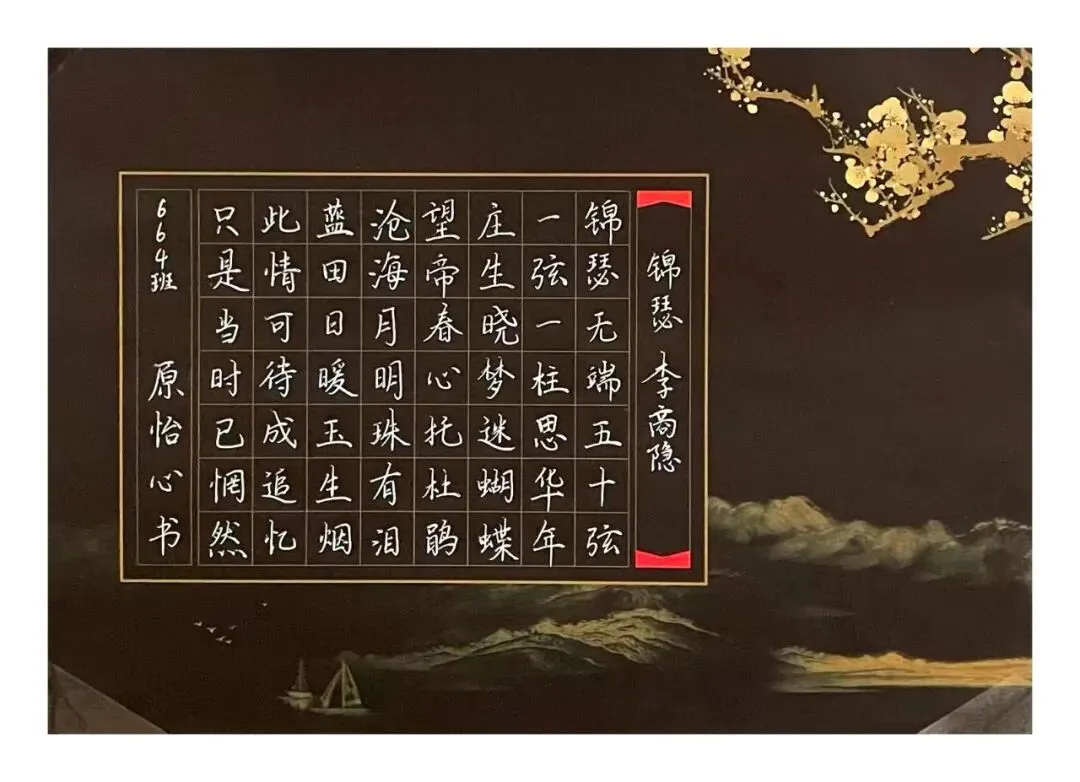 锦瑟 李商隐
锦瑟无端五十弦
一弦一柱思华年
庄生晓梦迷蝴蝶
望帝春心托杜鹃
沧海月明珠有泪
蓝田日暖玉生烟
此情可待成追忆
只是当时已惘然
664班 原怡心书